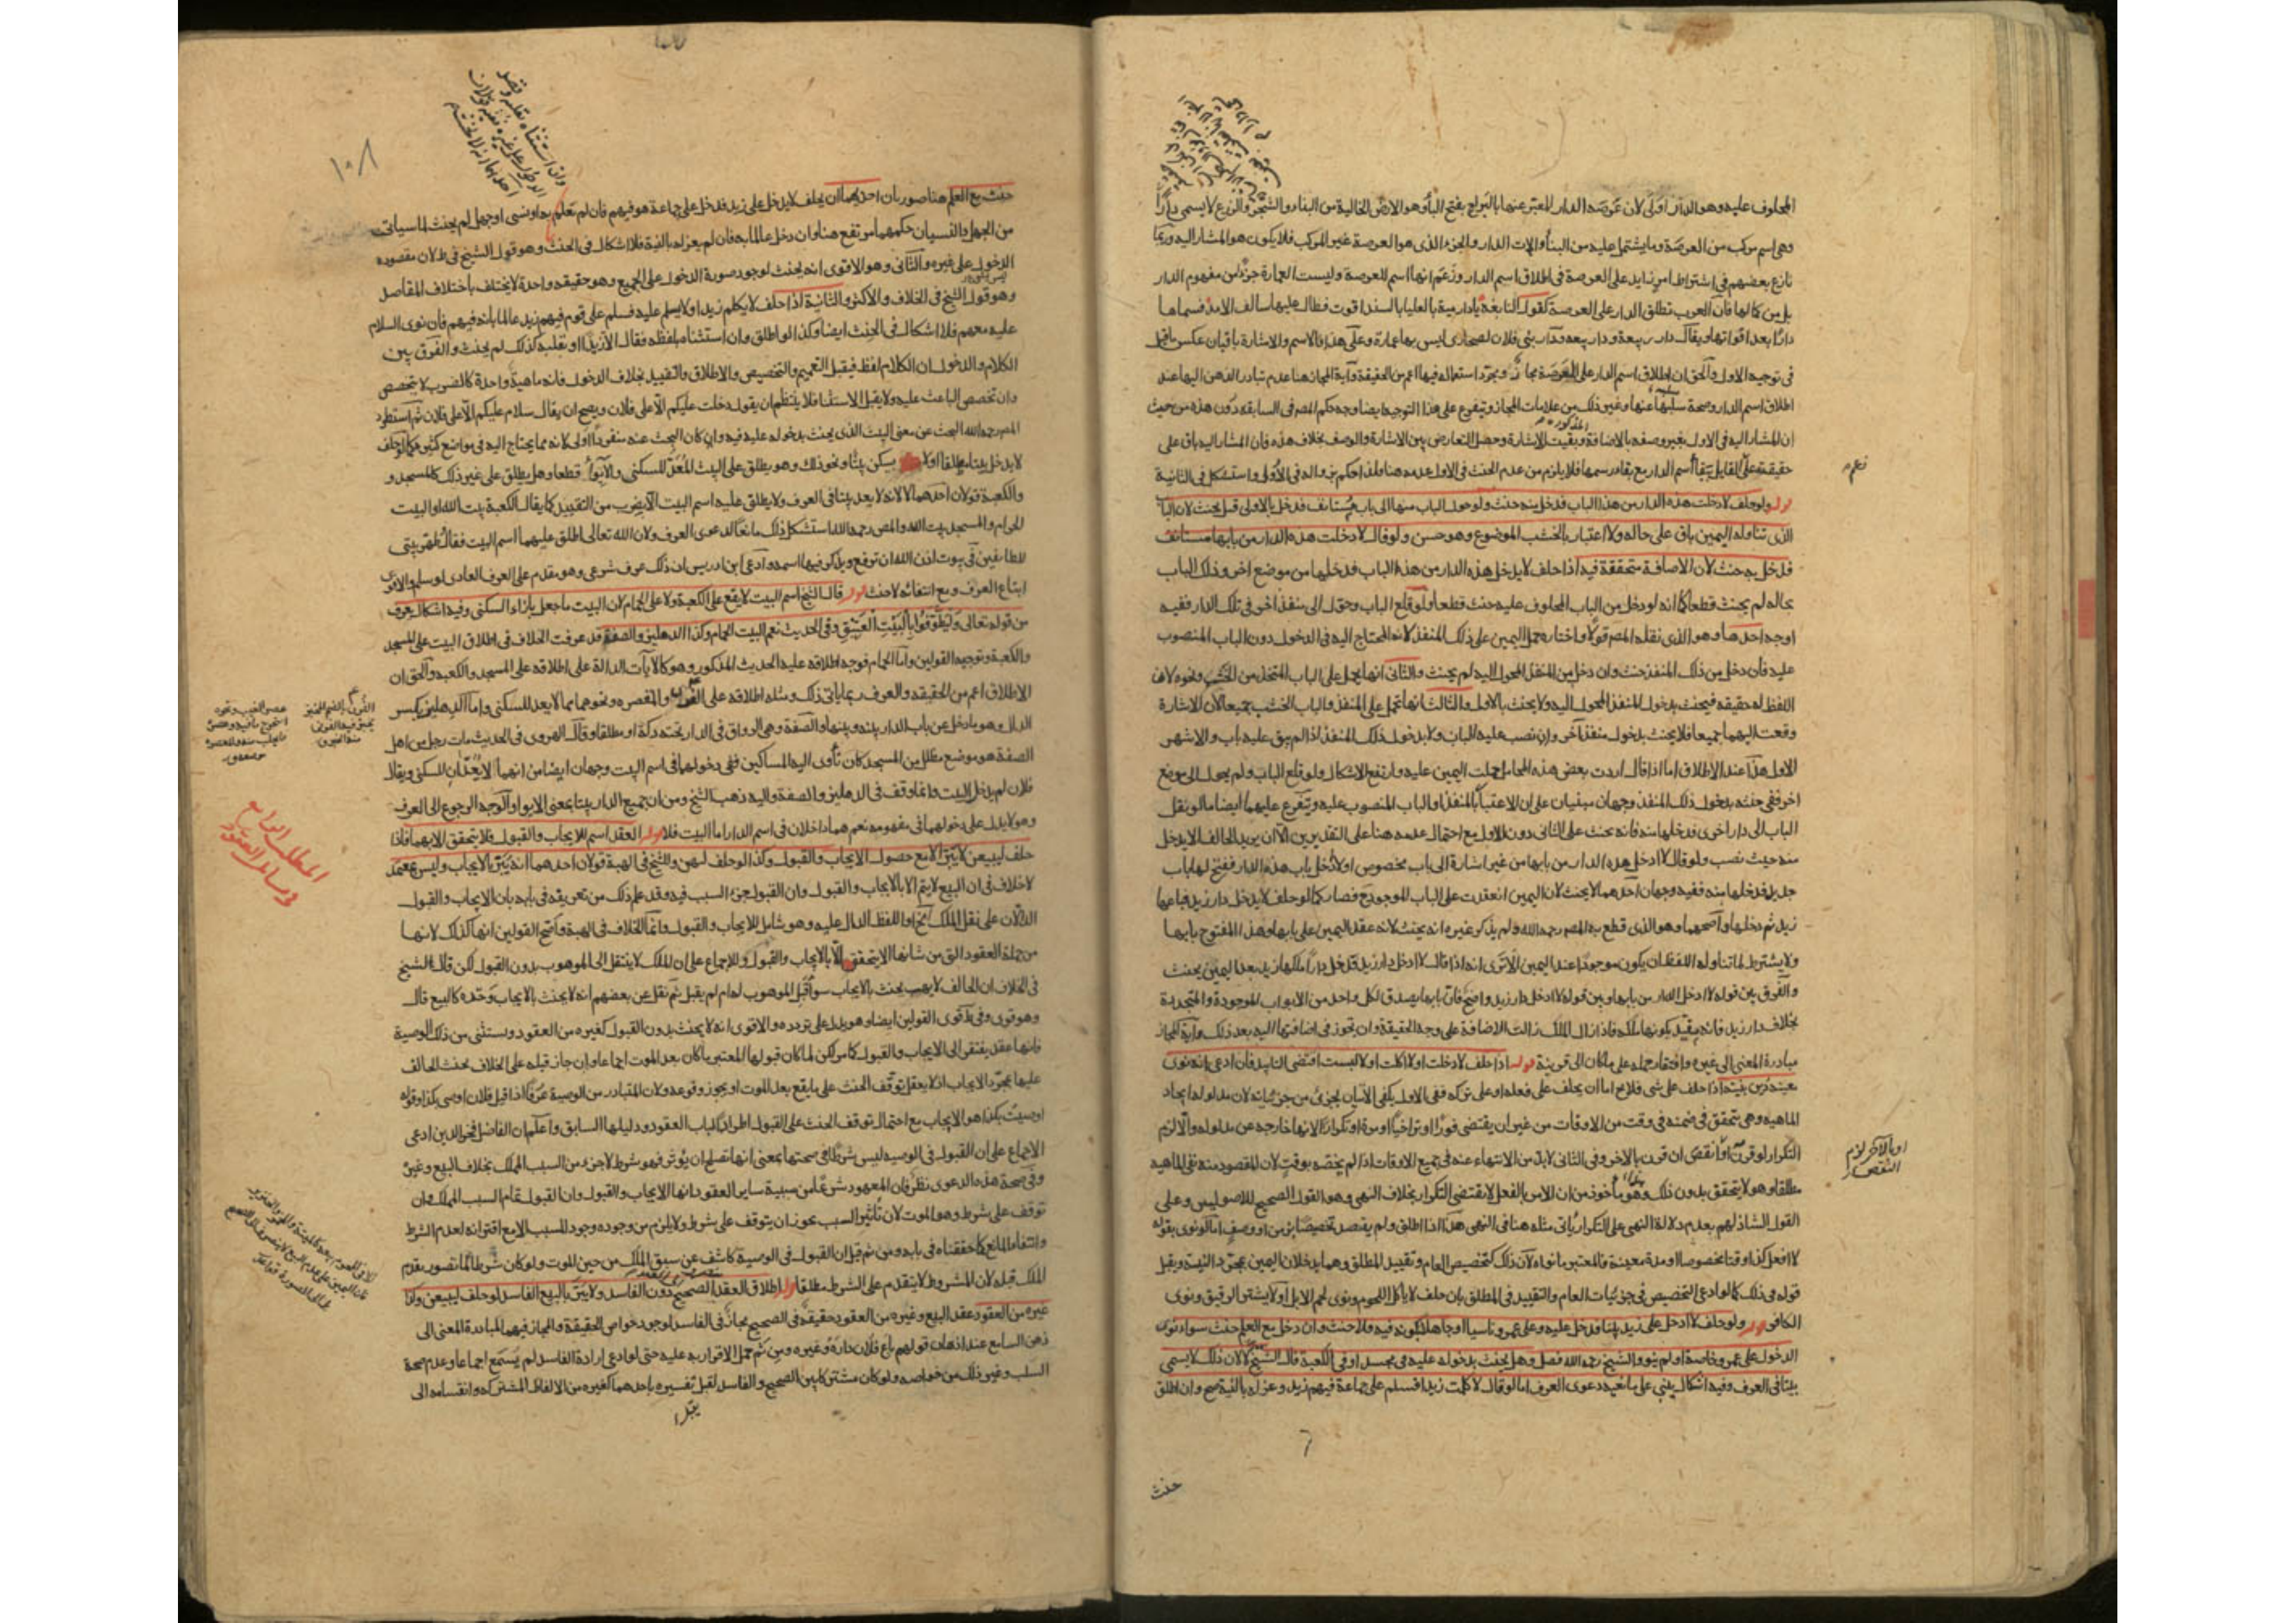 المحلوف عليه وهو الدار اولى لان عرصة الدار المعبر عنها بالبراح بفتح الباء وهو الارض الخالية من البناء والشجر والزرع لا يسمى دارا
وهى اسم مركب من العرصة وما يشتمل عليه من البناء والات الدار والجزء الذى هو العرصة غير المركب فلا يكون هو المشار اليه وربما
نازع بعضهم فى اشتراط امر زايد على العرصة فى اطلاق اسم الدار وزعم انها اسم للعرصة وليست العمارة جزءا من مفهوم الدار
بل من كمالها فان العرب تطلق الدار على العرصة كقول النابغة يا دار مية بالعلياء بالسند اقوت فطال عليها سالف الامد فسماها
دارا بعد اقوائها ويقال دار ربيعة ودار بنى فلان لصحارى ليس بها عمارة وعلى هذا فالاسم والاشارة باقيان عكس ما قيل
فى توجيه الاول والحق ان اطلاق اسم الدار على العرصة مجاز ومجرد استعماله فيها اعم من الحقيقة واية المجاز هنا عدم تبادر الذهن اليها عند
اطلاق اسم الدار وصحة سلبها عنها وغير ذلك من علامات المجاز ويتفرع على هذا التوجيه ايضا وجه حكم المصر فى السابقه دون هذه من حيث
ان المشار اليه فى الاول بغير وصفه بالاضافة وبقيت الاشارة وحصل التعارض بين الاشارة والوصف بخلاف هذه فان المشار اليه باق على
قوله ولو حلف لا دخلت هذه الدار من هذا الباب فدخل منه حنث ولو حول الباب منها الى باب مستانف فدخل بالاول قيل يحنث لان الباب
الذى تناوله اليمين باق على حاله ولا اعتبار بالخشب الموضوع وهو حسن ولو قال لا دخلت هذه الدار من بابها مستانف
فدخل به حنث لان الاضافة متحققة فيه اذا حلف لا يدخل هذه الدار من هذا الباب فدخلها من موضع اخر وذلك الباب
بحاله لم يحنث قطعا كما انه لو دخل من الباب المحلوف عليه حنث قطعا ولو قلع الباب وحول الى منفذ اخر فى تلك الدار ففيه
اوجه احدها وهو الذى نقله المصر قولا واختاره حمل اليمين على ذلك المنفذ لانه المحتاج اليه فى الدخول دون الباب المنصوب
عليه فان دخل من ذلك المنفذ حنث وان دخل من المنفذ المحول اليه لم يحنث والثانى انها يحمل على الباب المتخذ من الخشب ونحوه لان
اللفظ له حقيقه فيحنث بدخول المنفذ المحول اليه ولا يحنث بالاول والثالث انها تحمل على المنفذ والباب الخشب جميعا لان الاشارة
وقعت اليهما جميعا فلا يحنث بدخول منفذ آخر وان نصب عليه الباب ولا بدخول ذلك المنفذ اذا لم يبق عليه باب والاشهر
الاول هذا عند الاطلاق اما اذا قال اردت بعض هذه المحامل حملت اليمين عليه وارتفع الاشكال ولو قلع الباب ولم يحول الى موضع
اخر ففى حنثه بدخول ذلك المنفذ وجهان مبنيان على ان الاعتبار بالمنفذ او الباب المنصوب عليه ويتفرع عليهما ايضا ما لو نقل
الباب الى دار اخرى فدخلها منه فانه يحنث على الثانى دون الاول مع احتمال عدمه هنا على التقديرين الا ان يريد الحالف الا يدخل
منه حيث نصب ولو قال لا ادخل هذه الدار من بابها من غير اشارة الى باب مخصوص او لا ادخل باب هذه الدار ففتح لها باب
جديد فدخلها منه ففيه وجهان احدهما لا يحنث لان اليمين انعقدت على الباب الموجود ح فصار كما لو حلف لا يدخل دار زيد فباعها
زيد ثم دخلها واصحهما وهو الذى قطع به المصر رحمه الله ولم يذكر غيره انه يحنث لانه عقد اليمين على بابها وهذا المفتوح بابها
ولا يشترط لما تناوله اللفظ ان يكون موجودا عند اليمين الا ترى انه اذا قال لا ادخل دار زيد فدخل دارا ملكها زيد بعد اليمين يحنث
والفرق بين قوله لا ادخل الدار من بابها وبين قوله لا ادخل دار زيد واضح فان بابها يصدق لكل واحد من الابواب الموجودة والمتجددة
بخلاف دار زيد فانه يقيد بكونها ملكه فاذا زال الملك زالت الاضافة على وجه الحقيقة وان تجوز فى اضافتها اليه بعد ذلك واية المجاز
مبادرة المعنى الى غيره وافتقار حمله على ما كان الى قرينة قوله اذا حلف لا دخلت او لا اكلت او لا لبست اقتضى التابيد فان ادعى انه نوى
معينة دين بنيته اذا حلف على شى فلا يخ اما ان يحلف على فعله او على تركه ففى الاول يكفى الاتيان بجزئى من جزئياته لان مدلوله ايجاد
الماهيه وهى يتحقق فى ضمنه فى وقت من الاوقات من غير ان يقتضى فورا او تراخيا او مرة او تكرارا لانها خارجه عن مدلوله والا لزم
التكرار لو قرن او النقض ان قرن بالاخر وفى الثانى لابد من الانتهاء عنه فى جميع الاوقات اذا لم يخصه بوقت لان المقصود منه نفى الماهيه
مطلقا وهو لا يتحقق بدون ذلك وهو ماخوذ من ان الامر بالفعل لا يقتضى التكرار بخلاف النهى وهو القول الصحيح للاصوليين وعلى
القول الشاذ لهم بعدم دلالة النهى على التكرار ياتى مثله هنا فى النهى هذا اذا اطلق ولم يقصد تخصيصا بزمن او وصف اما لو نوى بقوله
لا افعل كذا وقتا مخصوصا او مدة معينة فالمعتبر ما نواه لان ذلك كتخصيص العام وتقييد المطلق وهما يدخلان اليمين بمجرد النية ويقبل
قوله فى ذلك كما لو ادعى التخصيص فى جزئيات العام والتقييد فى المطلق بان حلف لا ياكل اللحوم ونوى لحم الابل او لا يشترى الرقيق ونوى
الكافر قوله ولو حلف لا ادخل على زيد بيتا فدخل عليه وعلى عمرو ناسيا او جاهلا بكونه فيه فلا حنث وان دخل مع العلم حنث سواء نوى
الدخول على عمرو خاصة او لم ينو والشيخ رحمه الله فصل وهل يحنث بدخوله عليه فى مسجد او فى الكعبة قال الشيخ لا لان ذلك لا يسمى
بيتا فى العرف وفيه اشكال يبنى على ما نعيه دعوى العرف اما لو قال لا كلمت زيدا فسلم على جماعة فيهم زيد وعزله بالنية صح وان اطلق
حنث
او بالآخر لزم
النقص
١٠٨
حنث مع العلم هنا صورتان احديهما ان يحلف لا يدخل على زيد فدخل على جماعة هو فيهم فان لم يعلم به او نسى او جهل لم يحنث لما سياتى
من الجهل والنسيان حكمهما مرتفع هنا وان دخل عالما به فان لم يعزله بالنية فلا اشكال فى الحنث وهو قول الشيخ فى ط لان مقصوده
الدخول على غيره والثانى وهو الاقوى انه يحنث لوجود صورة الدخول على الجميع وهو حقيقه واحدة لا يختلف باختلاف المقاصد
وهو قول الشيخ فى الخلاف والاكثر والثانية اذا حلف لا يكلم زيدا او لا يسلم عليه فسلم على قوم فيهم زيد عالما بانه فيهم فان نوى السلام
عليه معهم فلا اشكال فى الحنث ايضا وكذا لو اطلق وان استثناه بلفظه فقال الا زيدا او بقلبه كذلك لم يحنث والفرق بين
الكلام والدخول ان الكلام لفظ فيقبل التعميم والتخصيص والاطلاق والتقييد بخلاف الدخول فانه ماهية واحدة كالضرب لا يتخصص
وان تخصص الباعث عليه ولا يقبل الاستثنا فلا ينتظم ان يقول دخلت عليكم الا على فلان ويصح ان يقال سلام عليكم الا على فلان ثم استطرد
المصر رحمه الله البحث عن معنى البيت الذى يحنث بدخوله عليه فيه وان كان البحث عنه منفردا اولى لانه مما يحتاج اليه فى مواضع كثيرة كما لو حلف
لا يدخل بيتا مطلقا او لا يسكن بيتا ونحو ذلك وهو يطلق على البيت المعد للسكنى والايواء قطعا وهل يطلق على غير ذلك كالمسجد و
والكعبة قولان احدهما لا لانه لا يعد بيتا فى العرف ولا يطلق عليه اسم البيت الا بضرب من التقييد كما يقال الكعبة بيت الله او البيت
الحرام والمسجد بيت الله والمصر رحمه الله استشكل ذلك مانعا لدعوى العرف ولان الله تعالى اطلق عليهما اسم البيت فقال طهر بيتى
للطايفين فى بيوت اذن الله ان ترفع ويذكر فيها اسمه وادعى ابن ادريس ان ذلك عرف شرعى وهو مقدم على العرف العادى لو سلم والاقوى
اتباع العرف ومع انتفائه لا حنث قوله قال الشيخ اسم البيت لا يقع على الكعبة ولا على الحمام لان البيت ما جعل بازاء السكنى وفيه اشكال يعرف
من قوله تعالى وليطوفوا بالبيت العتيق وفى الحديث نعم البيت الحمام وكذا الدهليز والصفة قد عرفت الخلاف فى اطلاق البيت على المسجد
والكعبة وتوجيه القولين واما الحمام فوجه اطلاقه عليه الحديث المذكور وهو كالايات الدالة على اطلاقه على المسجد والكعبه والحق ان
الاطلاق اعم من الحقيقه والعرف ربما ياتى ذلك ومثله اطلاقه على الفرن والمعصره ونحوهما مما لا يعد للسكنى واما الدهليز بكسر
الدال وهو ما دخل عن باب الدار بينه وبينها والصفة وهى الرواق فى الدار تحته دكة او مطلقا وقال الهروى فى الحديث مات رجل من اهل
الصفة هو موضع مظلل من المسجد كان تأوى اليه المساكين ففى دخولهما فى اسم البيت وجهان ايضا من انهما لا يعدان للسكنى ويقال
فلان لم يدخل البيت وانما وقف فى الدهليز والصفة واليه ذهب الشيخ ومن ان جميع الدار بيتا بمعنى الايواء والوجه الرجوع الى العرف
وهو لا يدل على دخولهما فى مفهومه نعم هما داخلان فى اسم الدار اما البيت فلا قوله العقد اسم للايجاب والقبول فلا يتحقق الا بهما فاذا
حلف ليبيعن لا يبر الا مع حصول الايجاب والقبول وكذا لو حلف ليهبن وللشيخ فى الهبة قولان احدهما انه يبر بالايجاب وليس بمعتمد
لا خلاف فى ان البيع لا يتم الا بالايجاب والقبول وان القبول جزء السبب فيه وقد علم ذلك من تعريفه فى بابه بان الايجاب والقبول
الدالان على نقل الملك الخ او اللفظ الدال عليه وهو شامل للايجاب والقبول وانما الخلاف فى الهبة واصح القولين انها كذلك لانها
من جملة العقود التى من شانها الا يتحقق الا بالايجاب والقبول وللاجماع على ان الملك لا ينتقل الى الموهوب بدون القبول لكن قال الشيخ
فى الخلاف ان الحالف لا يهب يحنث بالايجاب سواء قبل الموهوب له ام لم يقبل ثم نقل عن بعضهم انه لا يحنث بالايجاب وحده كالبيع قال
وهو قوى وفى ط قوى القولين ايضا وهو يدل على تردده والاقوى انه لا يحنث بدون القبول كغيره من العقود ويستثنى من ذلك الوصية
فانها عقد يفتقر الى الايجاب والقبول كما مر لكن لما كان قبولها المعتبر ما كان بعد الموت اجماعا وان جاز قبله على الخلاف حنث الحالف
عليها بمجرد الايجاب اذ لا يعقل توقف الحنث على ما يقع بعد الموت او يجوز وقوعه ولان المتبادر من الوصية عرفا اذا قيل فلان اوصى بكذا وقوله
اوصيت بكذا هو الايجاب مع احتمال توقف الحنث على القبول اطرادا لباب العقود ودليلها السابق واعلم ان الفاضل فخر الدين ادعى
الاجماع على ان القبول فى الوصيه ليس شرطا فى صحتها بمعنى انها تصلح ان يؤثر فهو شرط لا جزء من السبب المملك بخلاف البيع وغيره
وفى صحة هذه الدعوى نظر فان المعهود شرعا من سببية ساير العقود انها الايجاب والقبول وان القبول تمام السبب المملك وان
توقف على شرط وهو الموت لان تأثير السبب يجوز ان يتوقف على شرط ولا يلزم من وجوده وجود المسبب الا مع اقترانه لعدم الشرط
وانتفاء المانع كما حققناه فى بابه ومن ثم قيل ان القبول فى الوصية كاشف عن سبق الملك من حين الموت ولو كان شرطا لما تصور تقدم
الملك قبله لان المشروط لا يتقدم على الشرط مطلقا قوله اطلاق العقد الصحيح دون الفاسد ولا يبر بالبيع الفاسد لو حلف ليبيعن وكذا
غيره من العقود عقد البيع وغيره من العقود حقيقة فى الصحيح مجاز فى الفاسد لوجود خواص الحقيقة والمجاز فيهما كمبادرة المعنى الى
ذهن السامع عند اطلاق قولهم باع فلان داره وغيره ومن ثم حمل الاقرار به عليه حتى لو ادعى ارادة الفاسد لم يسمع اجماعا وعدم صحة
السلب وغير ذلك من خواصه ولو كان مشتركا بين الصحيح والفاسد لقبل تفسيره باحدهما كغيره من الالفاظ المشتركه وانقسامه الى
المطلب الرابع
فى مسائل العقود